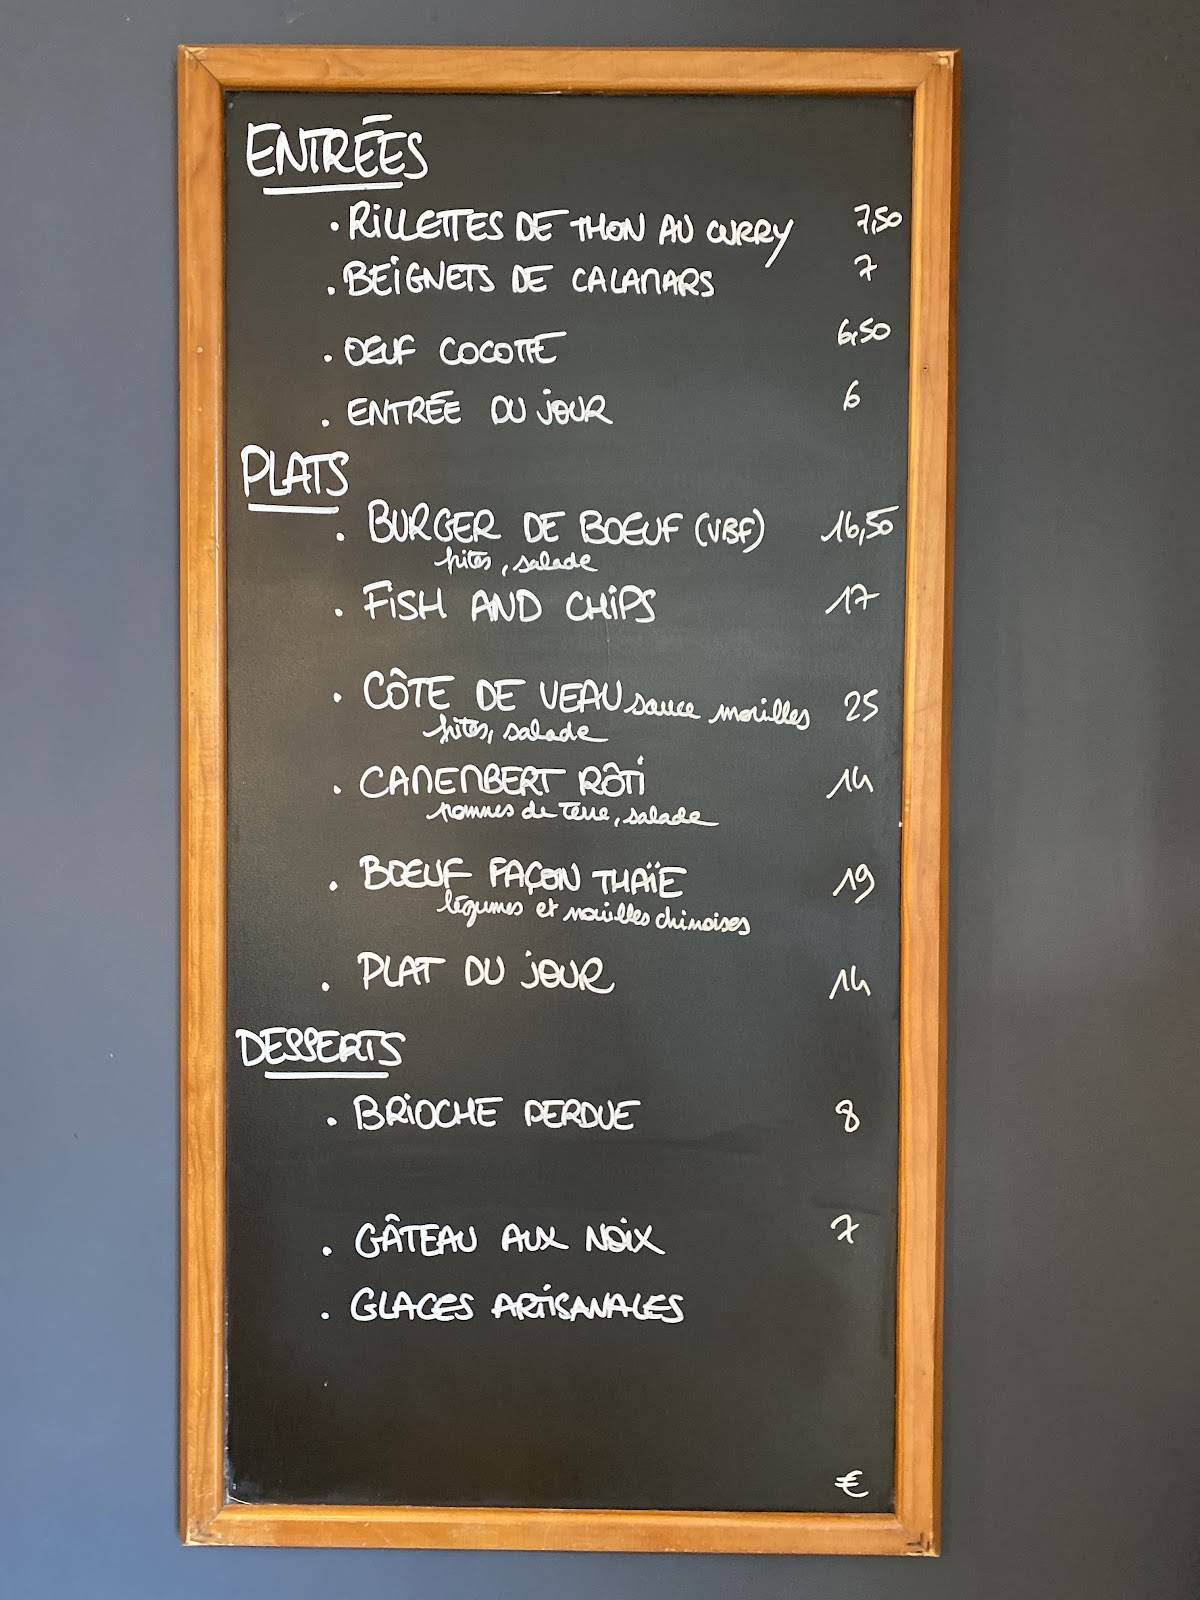 ENTRÉES
. RILLETTES DE THON AU CURRY 7,50
. BEIGNETS DE CALAMARS 7
. OEUF COCOTTE 6,50
. ENTRÉE DU JOUR 6
PLATS
. BURGER DE BOEUF (VBF) 16,50
frites, salade
. FISH AND CHIPS 17
. CÔTE DE VEAU sauce morilles 25
frites, salade
. CAMEMBERT RÔTI 14
pommes de terre, salade
. BOEUF FAÇON THAÏE 19
légumes et nouilles chinoises
. PLAT DU JOUR 14
DESSERTS
. BRIOCHE PERDUE 8
. GÂTEAU AUX NOIX 7
. GLACES ARTISANALES
€